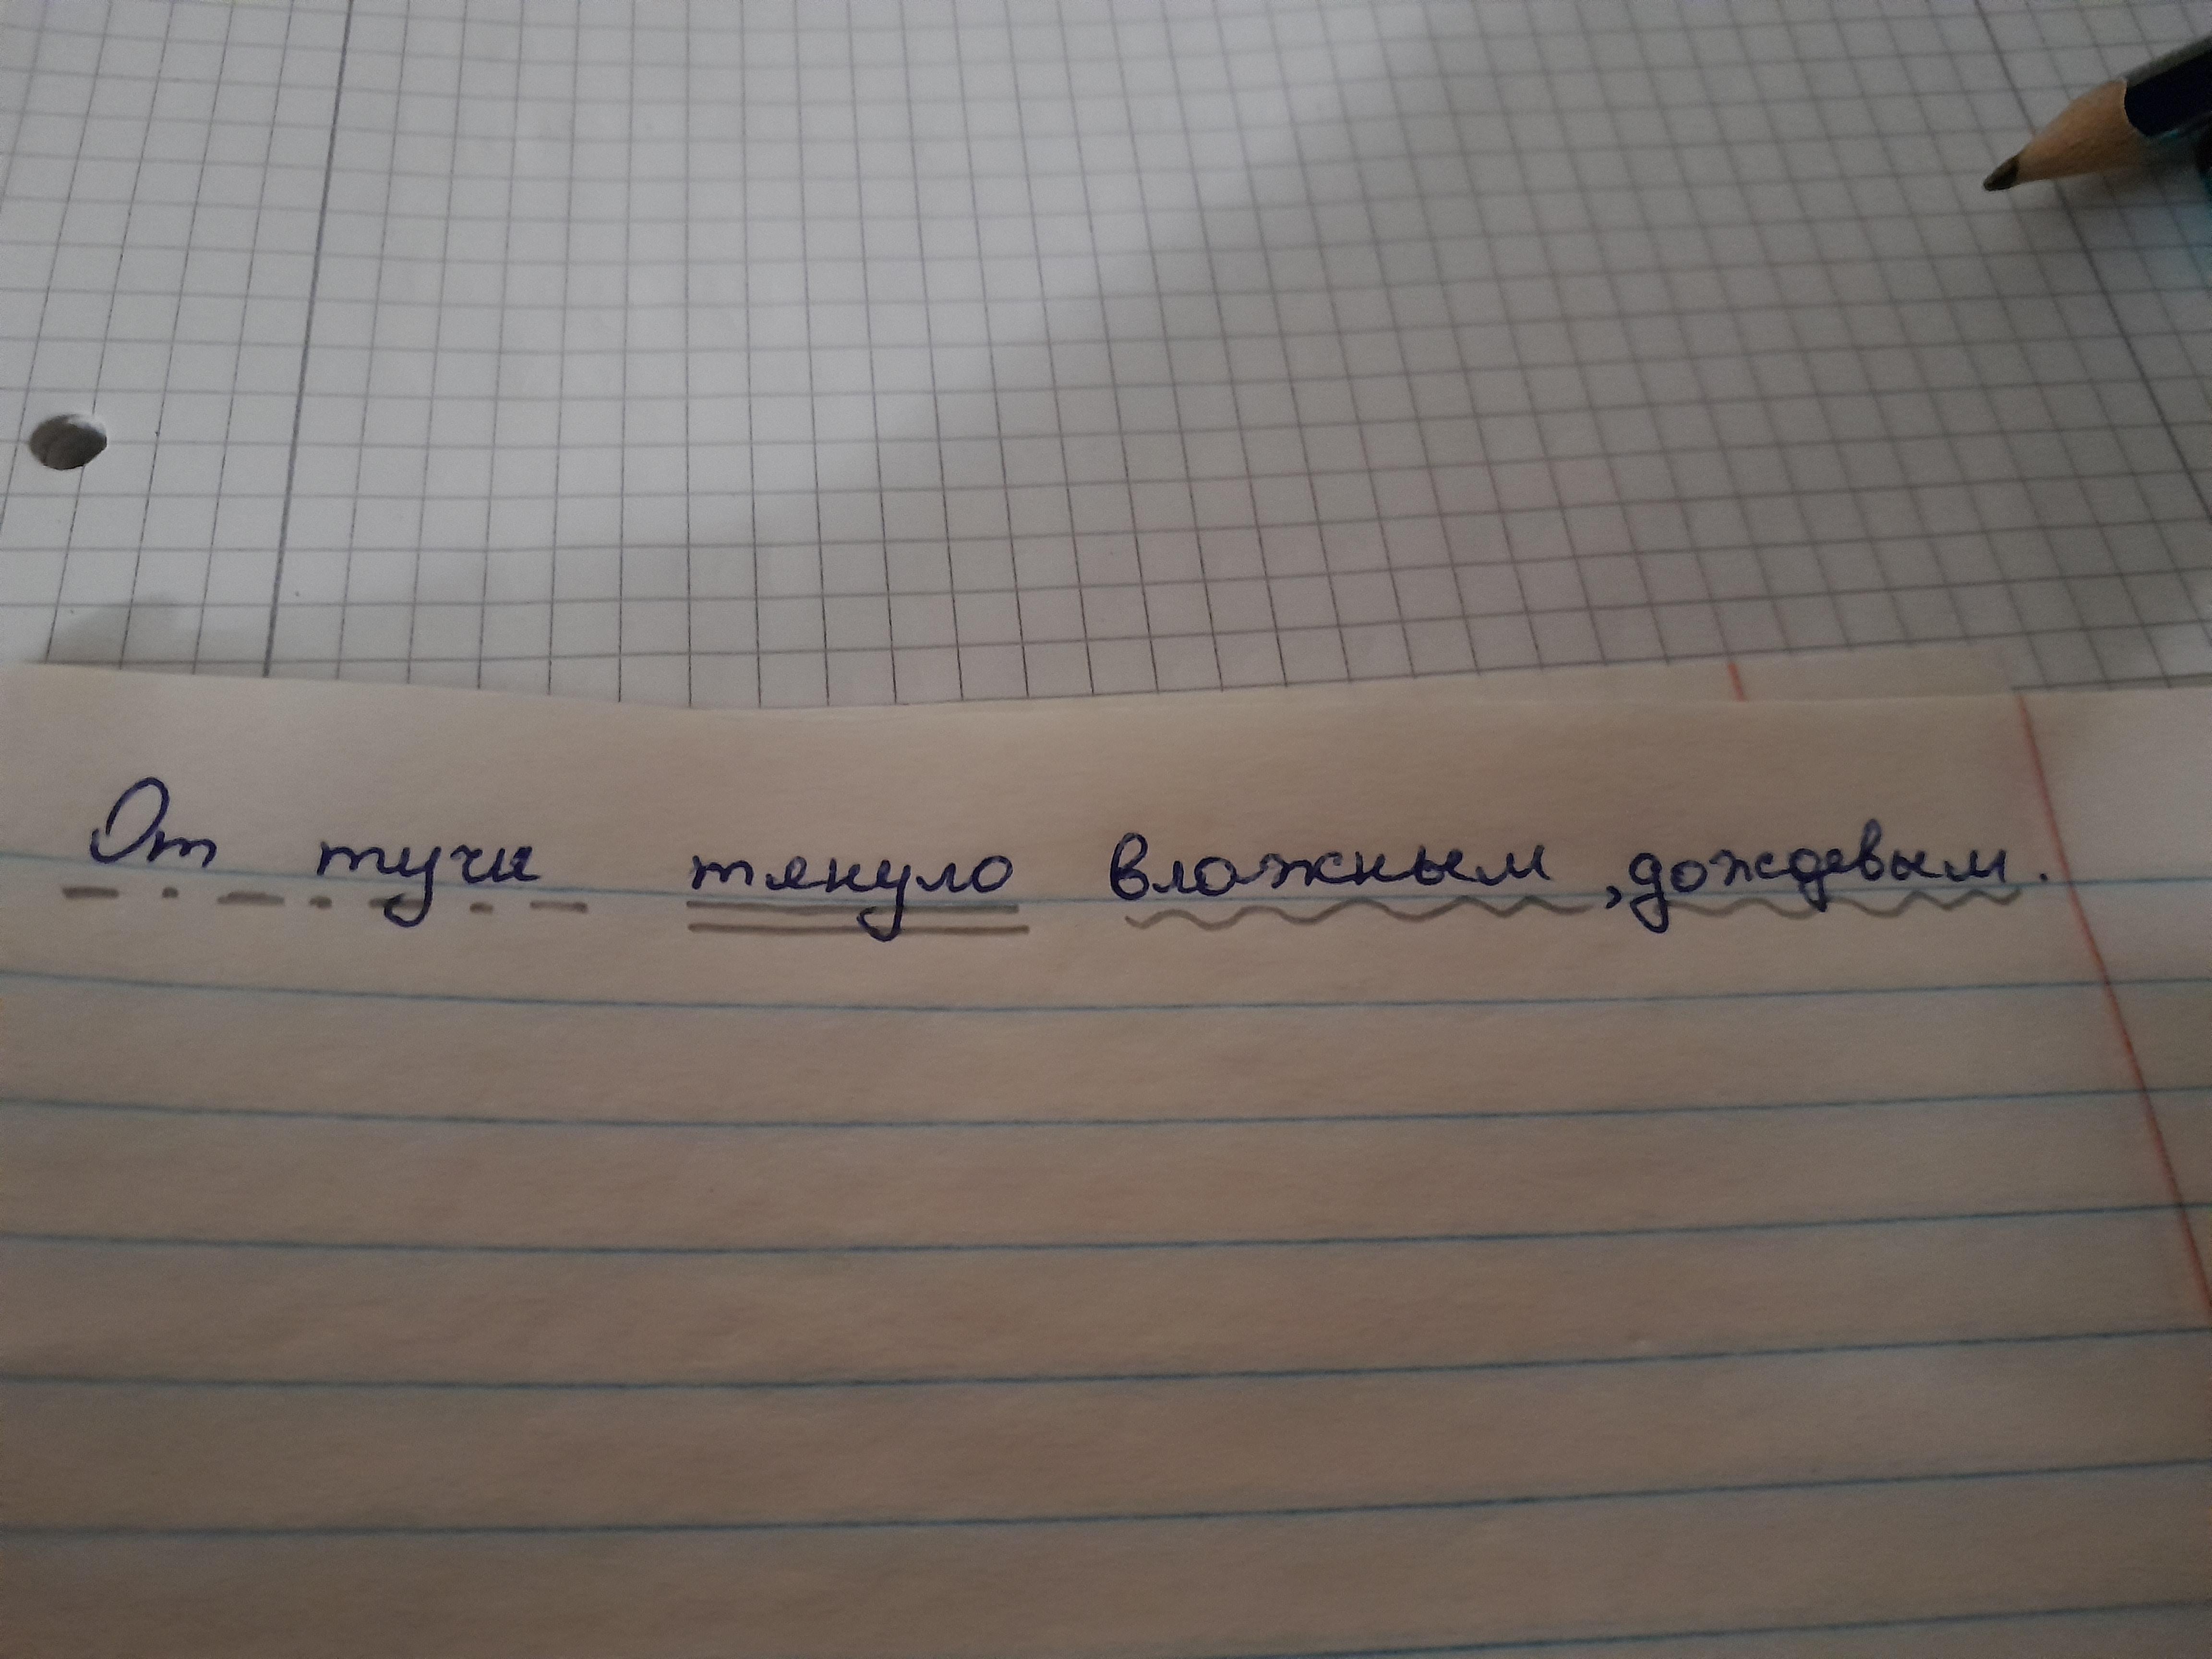 От тучи тянуло вложным, дождевым.